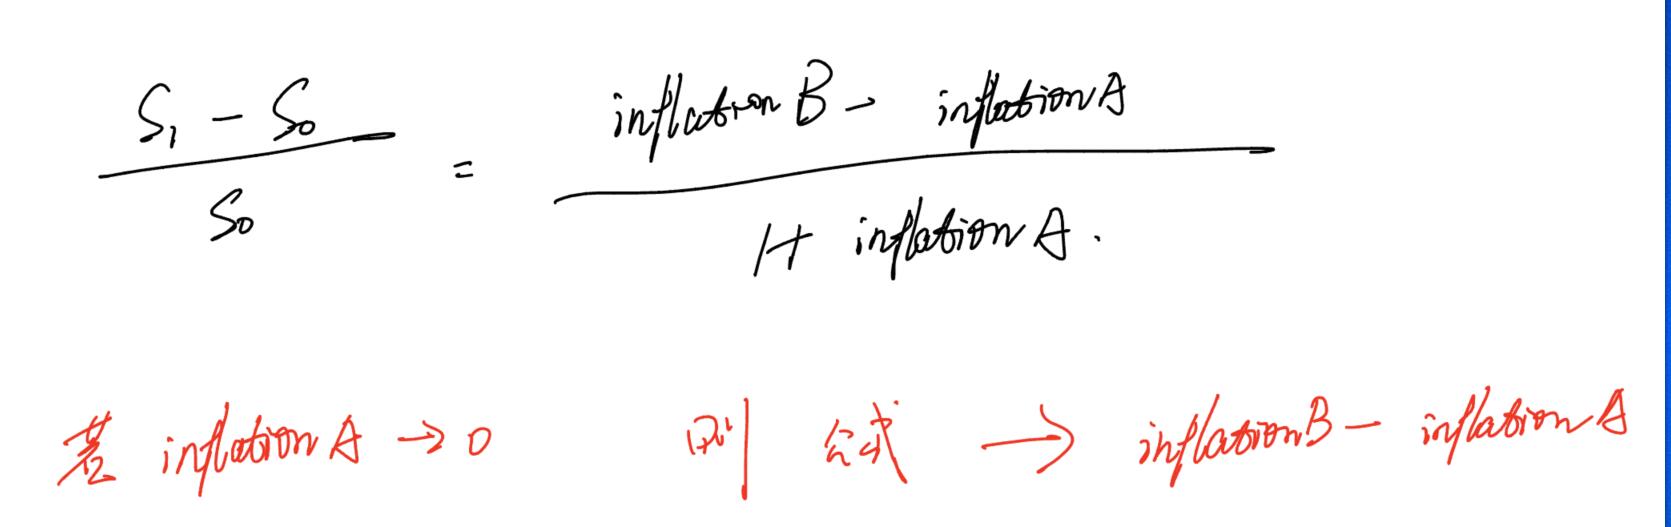 S₁ - S₀ / S₀ = inflation B - inflation A / 1+ inflation A.
若 inflation A → 0 则 公式 → inflation B - inflation A